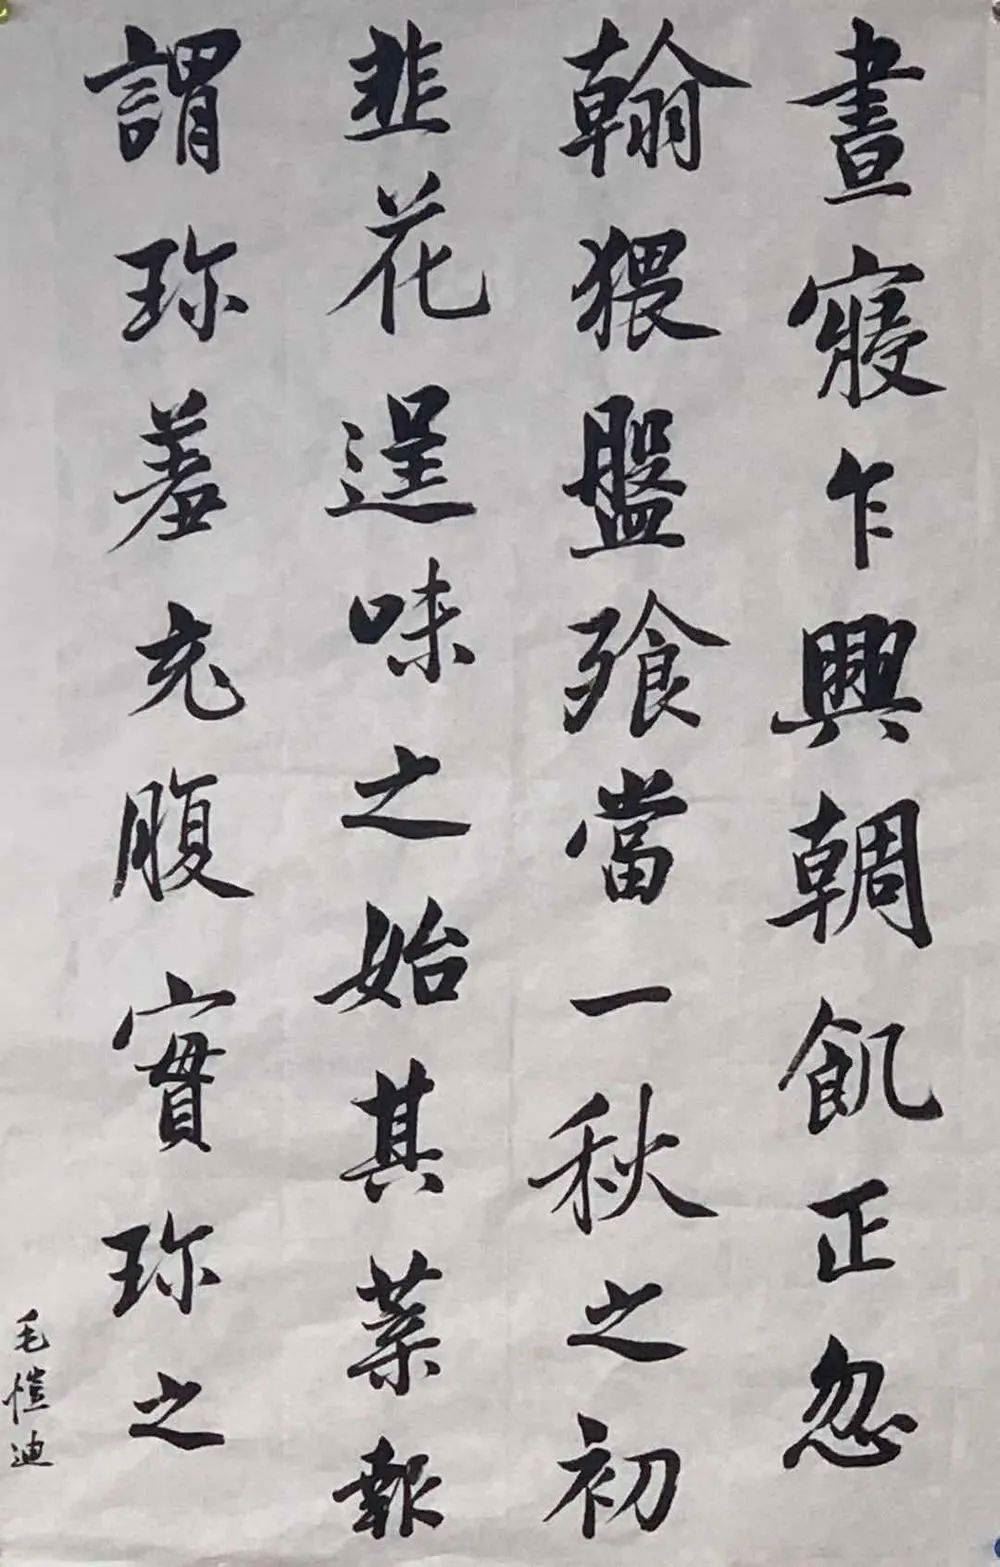 晝寢乍興朝飢正忽
翰猥盤飧當一秋之初
韭花逞味之始其菜報
謂珎羞充腹實珎之
毛愷迪